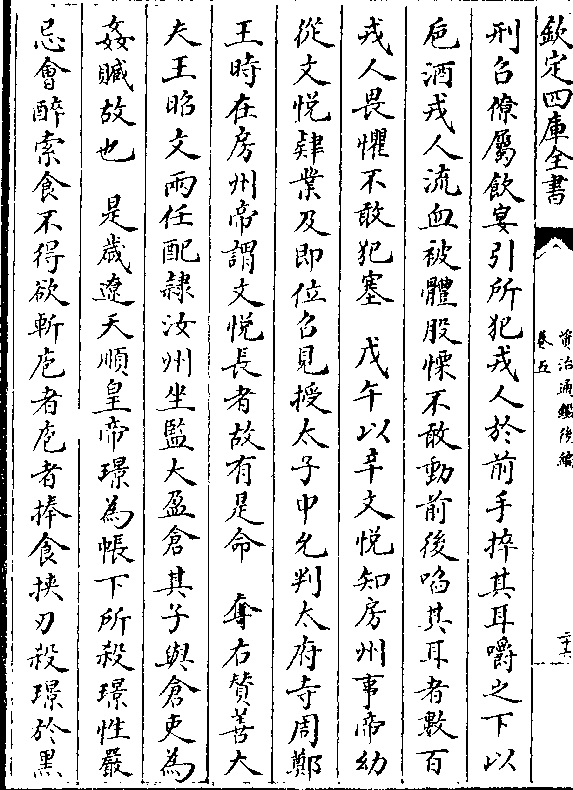 欽定四庫全書
資治通鑑後編
卷五
刑召僚屬飲宴引所犯戎人於前手捽其耳嚼之下以
巵酒戎人流血被體股慄不敢動前後啗其耳者數百
戎人畏懼不敢犯塞　戊午以辛文悅知房州事帝幼
從文悅肄業及即位召見授太子中允判太府寺周鄭
王時在房州帝謂文悅長者故有是命　奪右贊善大
夫王昭文兩任配隸汝州坐監大盈倉其子與倉吏為
姦贓故也　是歲遼天順皇帝璟為帳下所殺璟性嚴
忌會醉索食不得欲斬庖者庖者捧食挾刃殺璟於黑